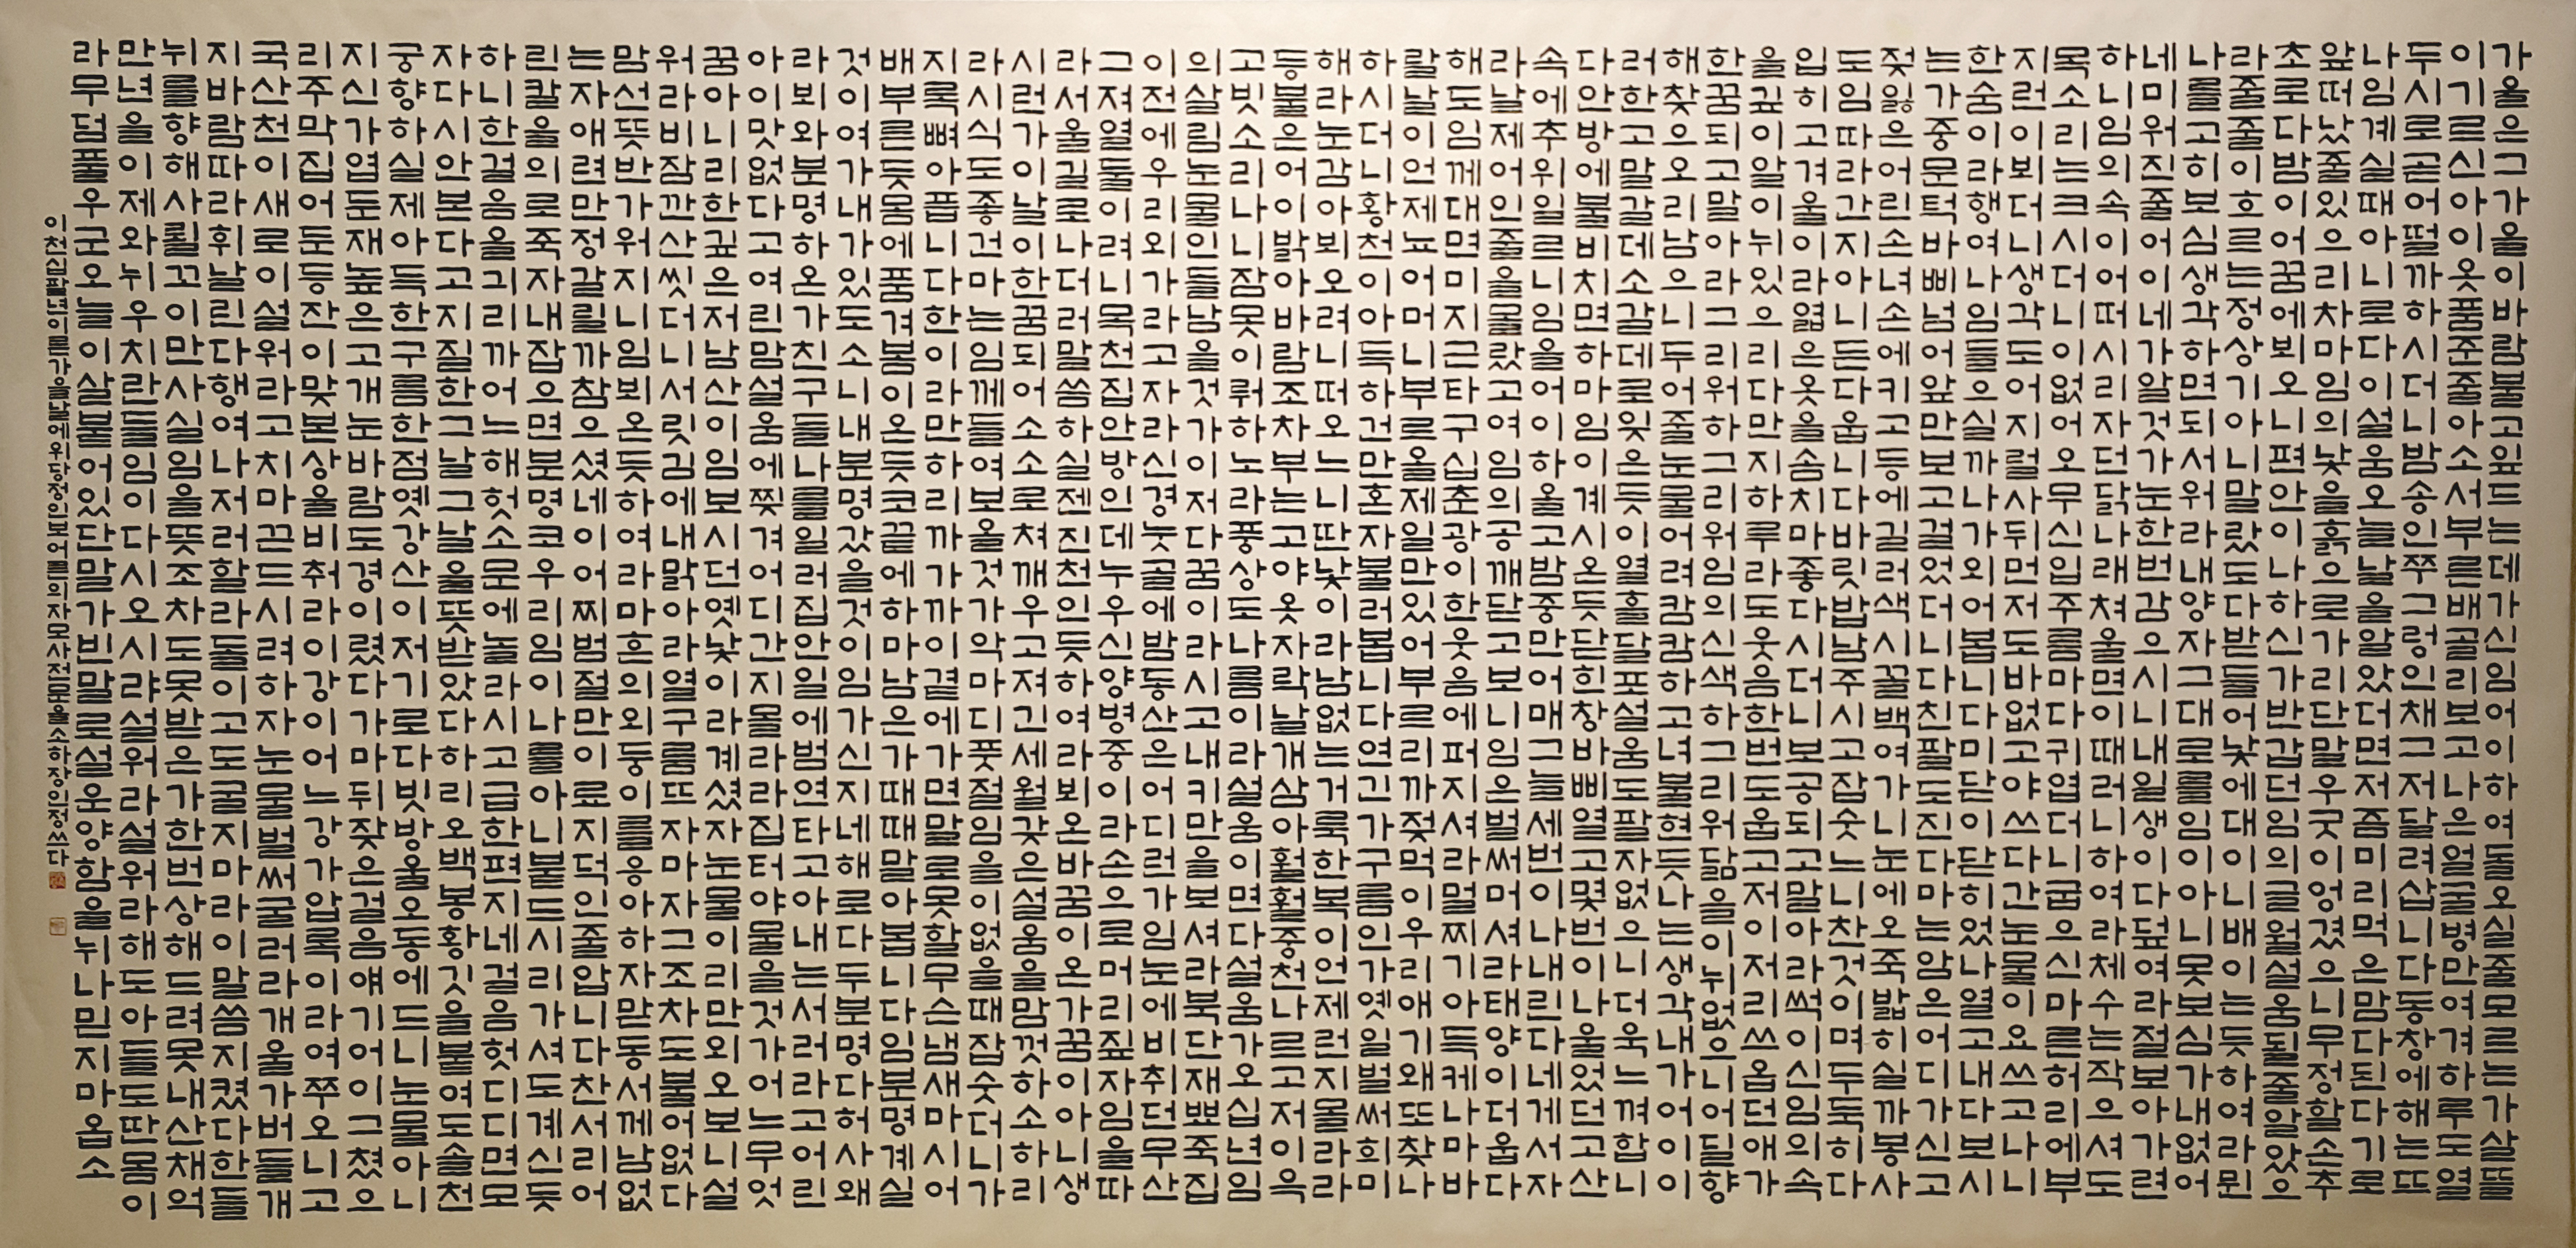 가을은그가을이바람불고잎드는데가신임어이하여돌오실줄모르는가살뜰
이기르신아이옷품준줄아소서부른배골리보고나은얼굴병만여겨하루도열
두시로곧어떨까하시더니밤송인쭈그렁인채그저달려삽니다동창에해는뜨
나임계실때아니로다이설움오늘날을알았더면저줌미리먹은맘다된다기로
앞떠났줄있으리차마임의낯을흙으로가리단말우굿이엉겼으니무정할손추
초로다밤이어꿈에뵈오니편안이나하신가반갑던임의글월설움될줄알았으
라줄줄이호르는정상기아니말랐도다받들어낯에대이니배이는듯하여라뮌
나를고히보심생각하면되서워라내양자그대로를임이아니못보심가내없어
네미워진줄어이네가알것가눈한번감으시니내일생이다덮여라절보아가련
하니임의속이어떠시리자던닭나래쳐울면이때러니하여라체수는작으셔도
목소리는크시더니이없어옴으신입주름마다귀엽더니굽으신마른허리에부
지런이뵈더니라생각도어지럴사뒤먼저도바없고야쓰다간눈물이요쓰고나니
한숨이라행여나임들으실까나가외어봅니다미닫이닫히었나열고내다보시
는가중문턱바삐넘어앞만보고걸었더니다친팔도진다마는임은어디가신고
젖잃은어린손녀손에키워등에길러색시꼴백여가니눈에오죽밟히실까봉사
도임따라간지아니든다웁니다바릿밥남주시고잡숫느니찬것이며두둑히다
입히고겨울이라엷은옷을솜치마좋다시더니보공되고말아라썩이신임의속
을깊이알이뉘있으리다만지하루라도웃음한번도웁고저이저리쓰옵던애가
한꿈되고말아라그리워하그리워임의신색하그리워닮을이뉘없으니어딜향
해찾으오리남으니두어줄눈물어려캄캄하고녀불현듯나는생각내가어이이
러한고말갈데소갈데로잊은듯이열흘달포설움도팔자없으니더욱느껴합니
다안방에불비치면하마임이계시온듯닫힌창바삐열고몇번이나울었던고산
속에추위일르니임을어이하올고밤중만어매그늘세번이나나린다네게서자
라날제어인줄을몰랐고여임의공깨닫고보니임은벌써머셔라태양이더웁다
해도임께대면미지근타구십춘광이한웃음에퍼지셔라멀찌기아득케나마바
랄날이언제뇨어머니부르올제일만있어부르리까젖먹이우리애기왜또찾나
하시더니황천이아득하건만혼자불러봅니다연긴가구름인가옛일벌써희미
해라눈감아뵈오려니떠오느니딴낯이라남없는거룩한복이언제런지몰라라
등불은어이밝아바람조차부는고야옷자락날개삼아훨훨중천나르고저이윽
고빗소리나니잠못이뤄하노라풍상도나름이라설움이면다설움가오십년임
의살림눈물인들남을것가이저다꿈이라시고내키만을보셔라북단재뾰죽집
이전에우리외가라고자라신경눗골에밤동산은어디런가임눈에비취던무산
그져열둘이려니목천집안방인데누우신양병중이라손으로머리짚자임을따
라서울길로나더러말씀하실젠진천인듯하여라뵈온바꿈이온가꿈이아니생
시런가이날이한꿈되어소소로쳐깨우고져긴세월갖은설움을맘껏하소하리
라시식도좋건마는임께들여보올것가악마디풋절임을이없을때잡숫더니가
지록뼈아픕니다한이라만하리까가까이곁에가면말로못할무슨냄새마시어
배부른듯몸에품겨봄이온듯코끝에하마남은가때때맡아봅니다임분명계실
것이여기내가있도소니내분명갔을것이임가신지네해로다두분명다허사왜
라뵈와분명하온가친구들나를일러집안일에범연타고아내는서러라고어린
아이맛없다고여린맘설움에찢겨어디간지몰라라집터야물을것가어느무엇
꿈아니리한깊은저남산이임보시던옛낯이라계셨자눈물이리만외오보니설
워라비잠깐산씻더니서릿김에내맑아라열구름뜨자마자그조차도불어없다
맘선뜻반가워지니임뵈온듯하여라마흔의외둥이를응아하자맏동서께남없
는자애련만정갈릴까참으셨네이어찌범절만이료지덕인줄압니다찬서리어
린칼을의로죽자내잡으면분명코우리임이나를아니붙드시리가셔도계신듯
하니한걸음을긔리까어느해헛소문에놀라시고급한편지네걸음헛디디면모
자다시안본다고지질한그날그날울뜻받았다하리오백봉황깃을붙여도솔천
궁향하실제아득한구름한점옛강산이저기로다빗방울오동에드니눈물아니
지신가엽둔재높은고개눈바람도경이렸다가마뒤잦은걸음얘기어이그쳤으
리주막집어둔등잔이맞본상을비춰라이강이어느강가압록이라여쭈오니고
국산천이새로이설워라고치마끈드시려하자눈물벌써굴러라개울가버들개
지바람따라휘날린다행여나저러할라돌이고도굴지마라이말씀지켰다한들
뉘를향해사뢸꼬이만사실임을뜻조차도못받은가한번상해드려못내산채억
만년을이제와뉘우치란들임이다시오시랴설워라설워라해도아들도딴몸이
라무덤풀우군오늘이살붙어있단말가빈말로설운양함을뉘나믿지마옵소
이천십팔년이른가을날에위당정인보어른의자모사저문을소하장인정쓰다